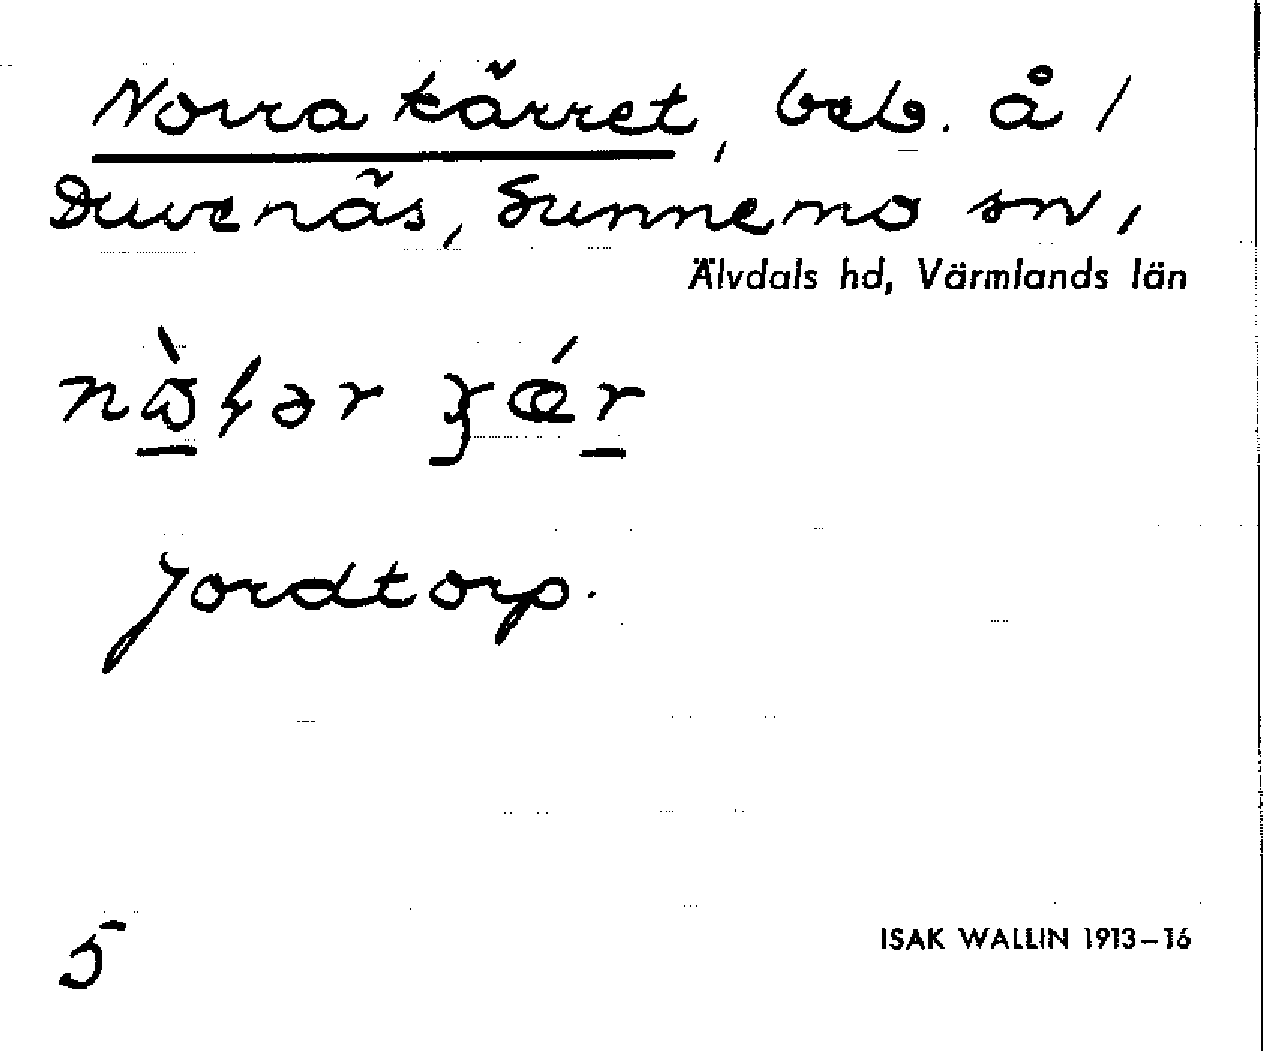 Norra kärret, beb. å /
Duvenäs, Sunnemo sn,
Älvdals hd, Värmlands län
Jordtorp.
5
ISAK WALLIN 1913–16